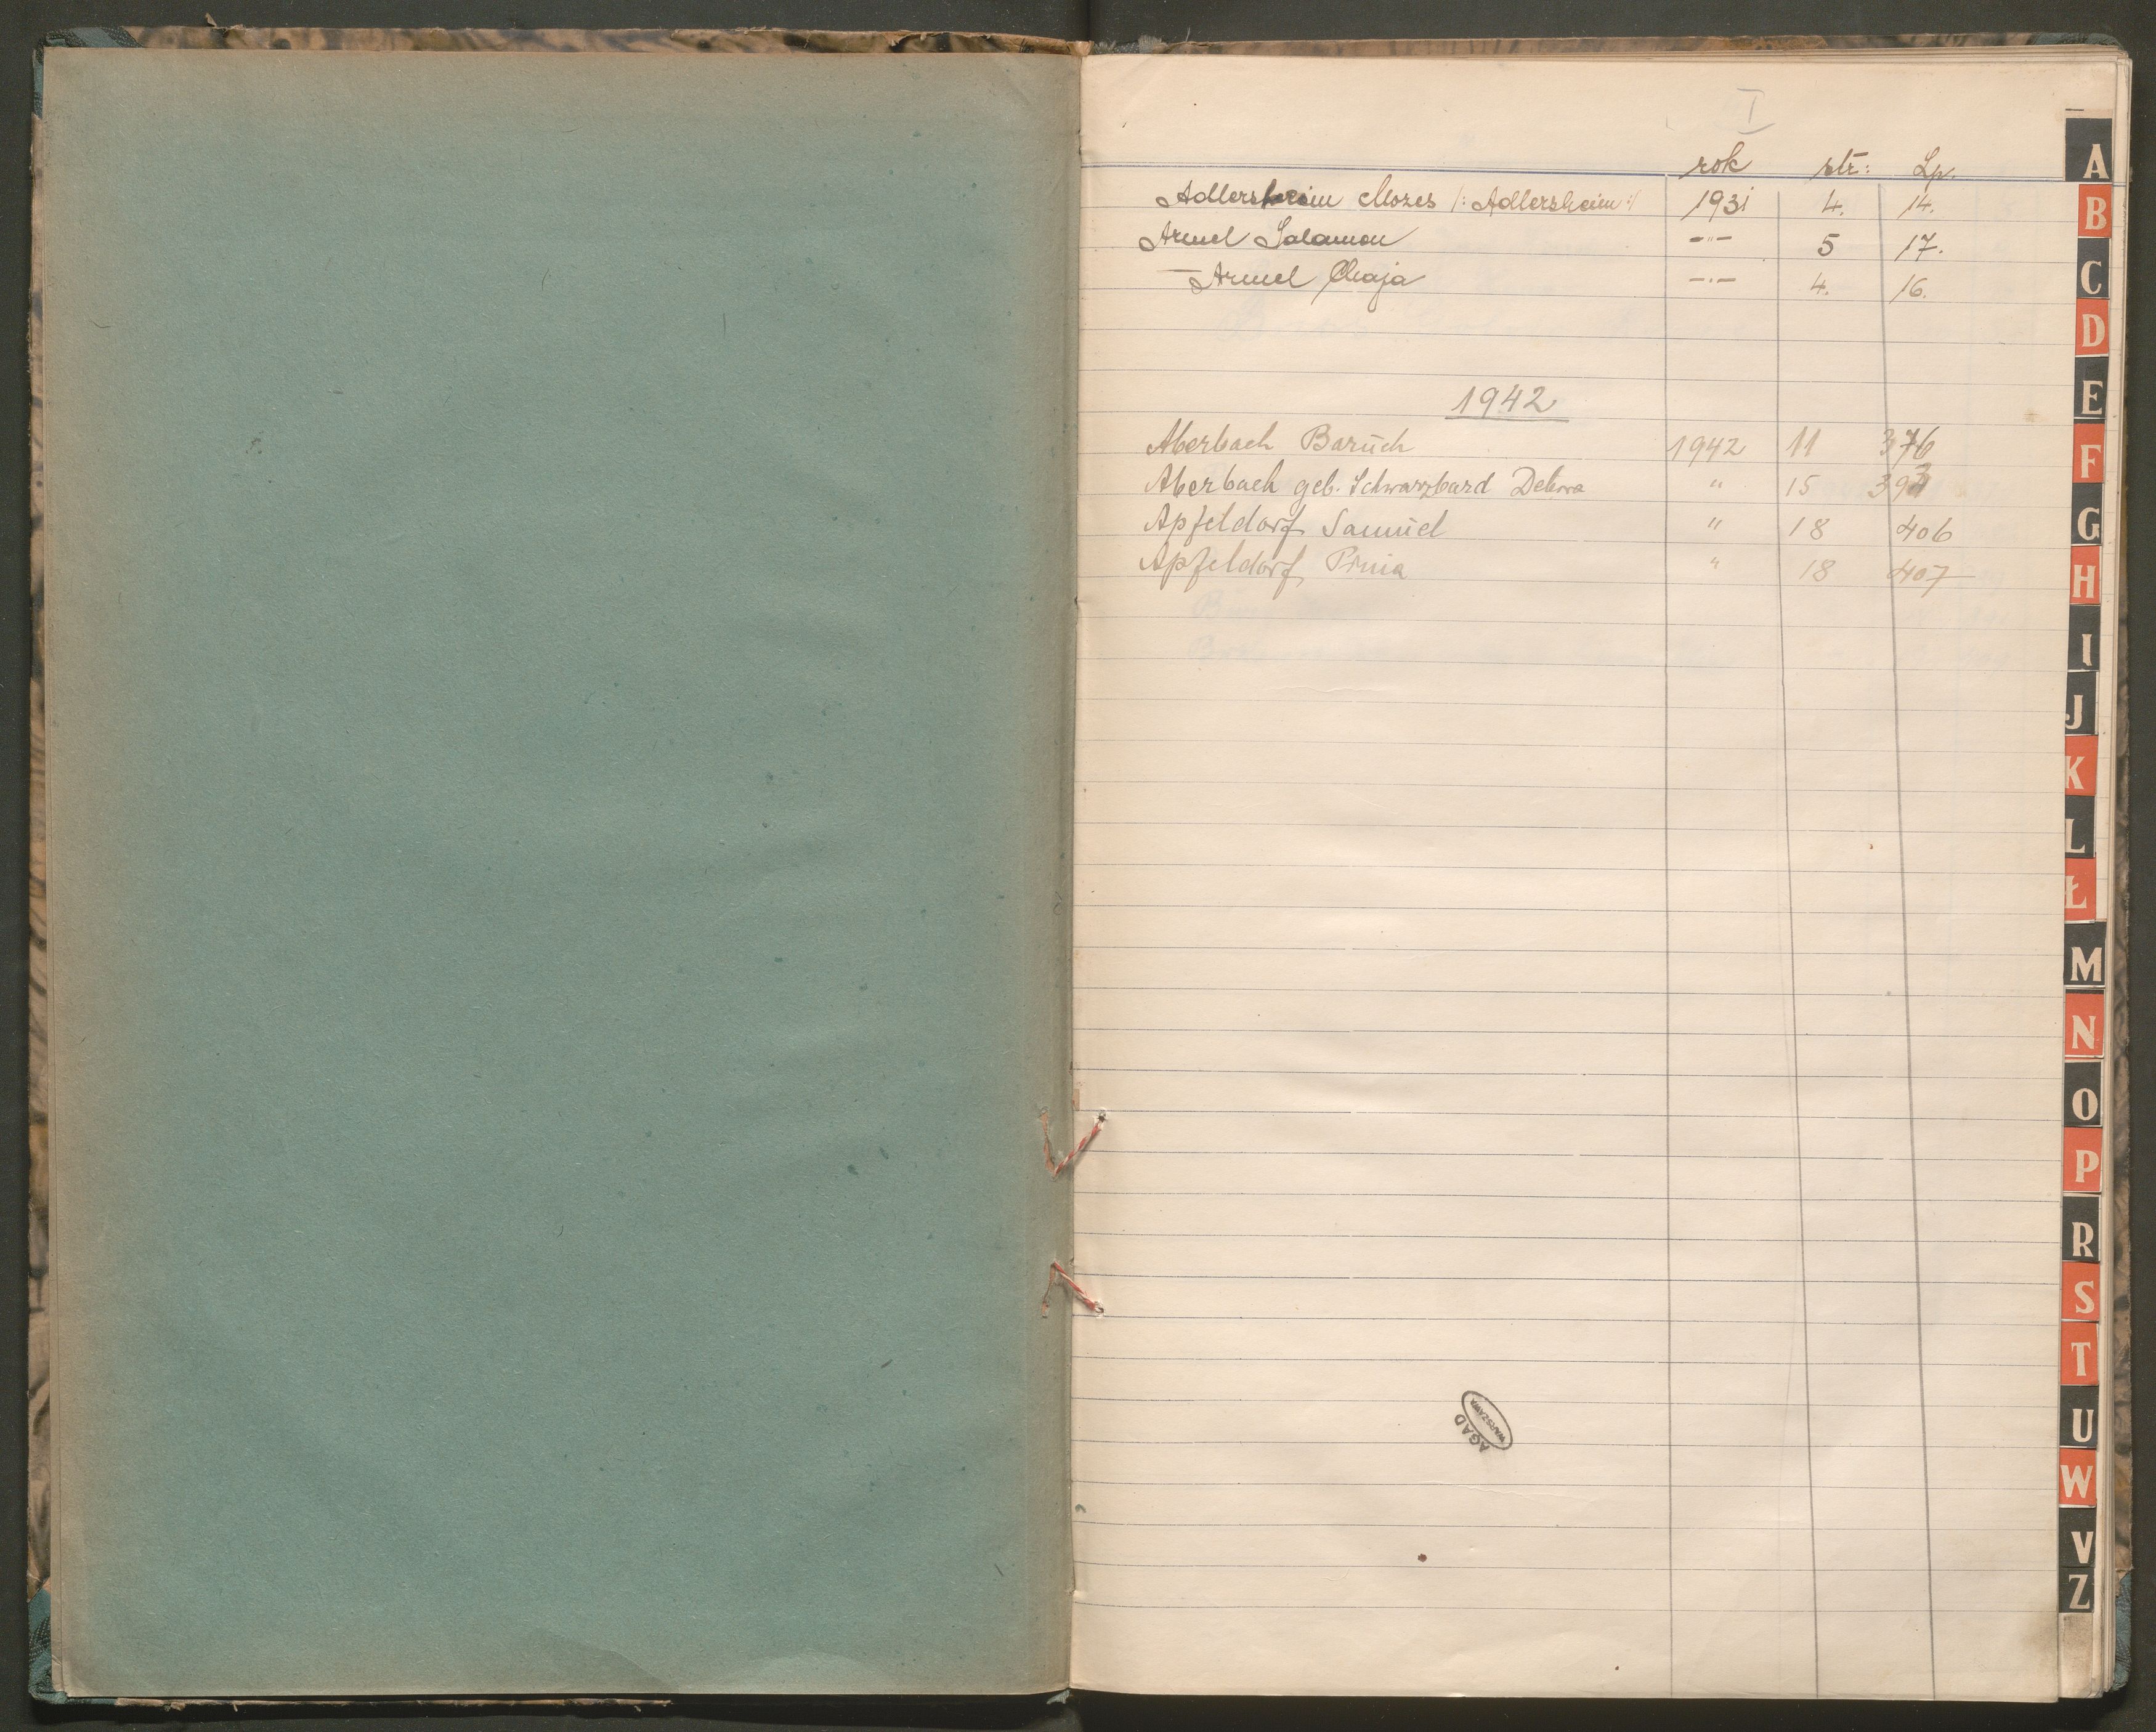 I
rok str: Lp.
Adlersheim Mozes /: Adlersheim :/ 1931 4. 14.
Armel Salamon -"- 5 17.
Armel Chaja -"- 4. 16.
1942
Aberbach Baruch 1942 11 376
Aberbach geb. Schwarzbard " 15
Apfeldorf Samuel " 18 406
Apfeldorf " 18 407
AGAD
WARSZAWA
A
B
C
D
E
F
G
H
I
J
K
L
Ł
M
N
O
P
R
S
T
U
W
V
Z